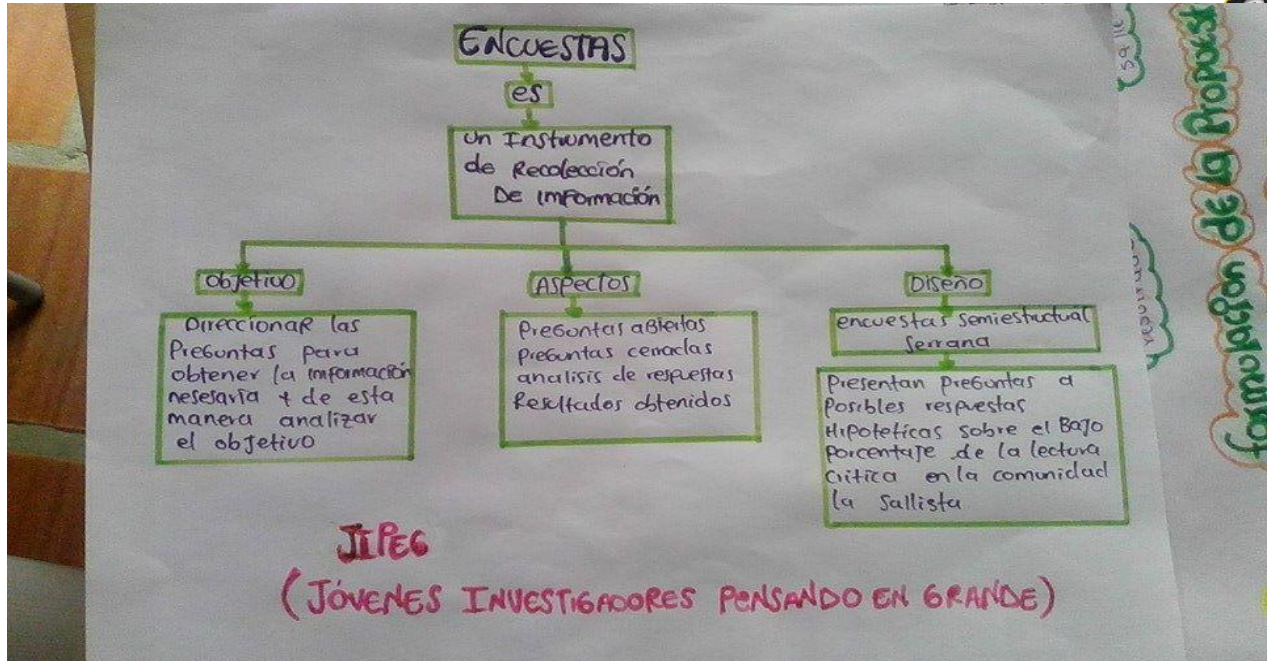 ENCUESTAS
es
un Instrumento
de Recolección
De información
objetivo
Direccionar las
Preguntas para
obtener la información
nesesaria + de esta
manera analizar
el objetivo
Aspectos
Preguntas abiertas
preguntas cerradas
analisis de respuestas
Resultados obtenidos
Diseño
encuestas semiestuctual
Serrana
Presentan preguntas a
Posibles respuestas
Hipoteticas sobre el Bajo
porcentaje de la lectura
critica en la comunidad
la Sallista
JIPEG
(JÓVENES INVESTIGADORES PENSANDO EN GRANDE)
de la Propuest